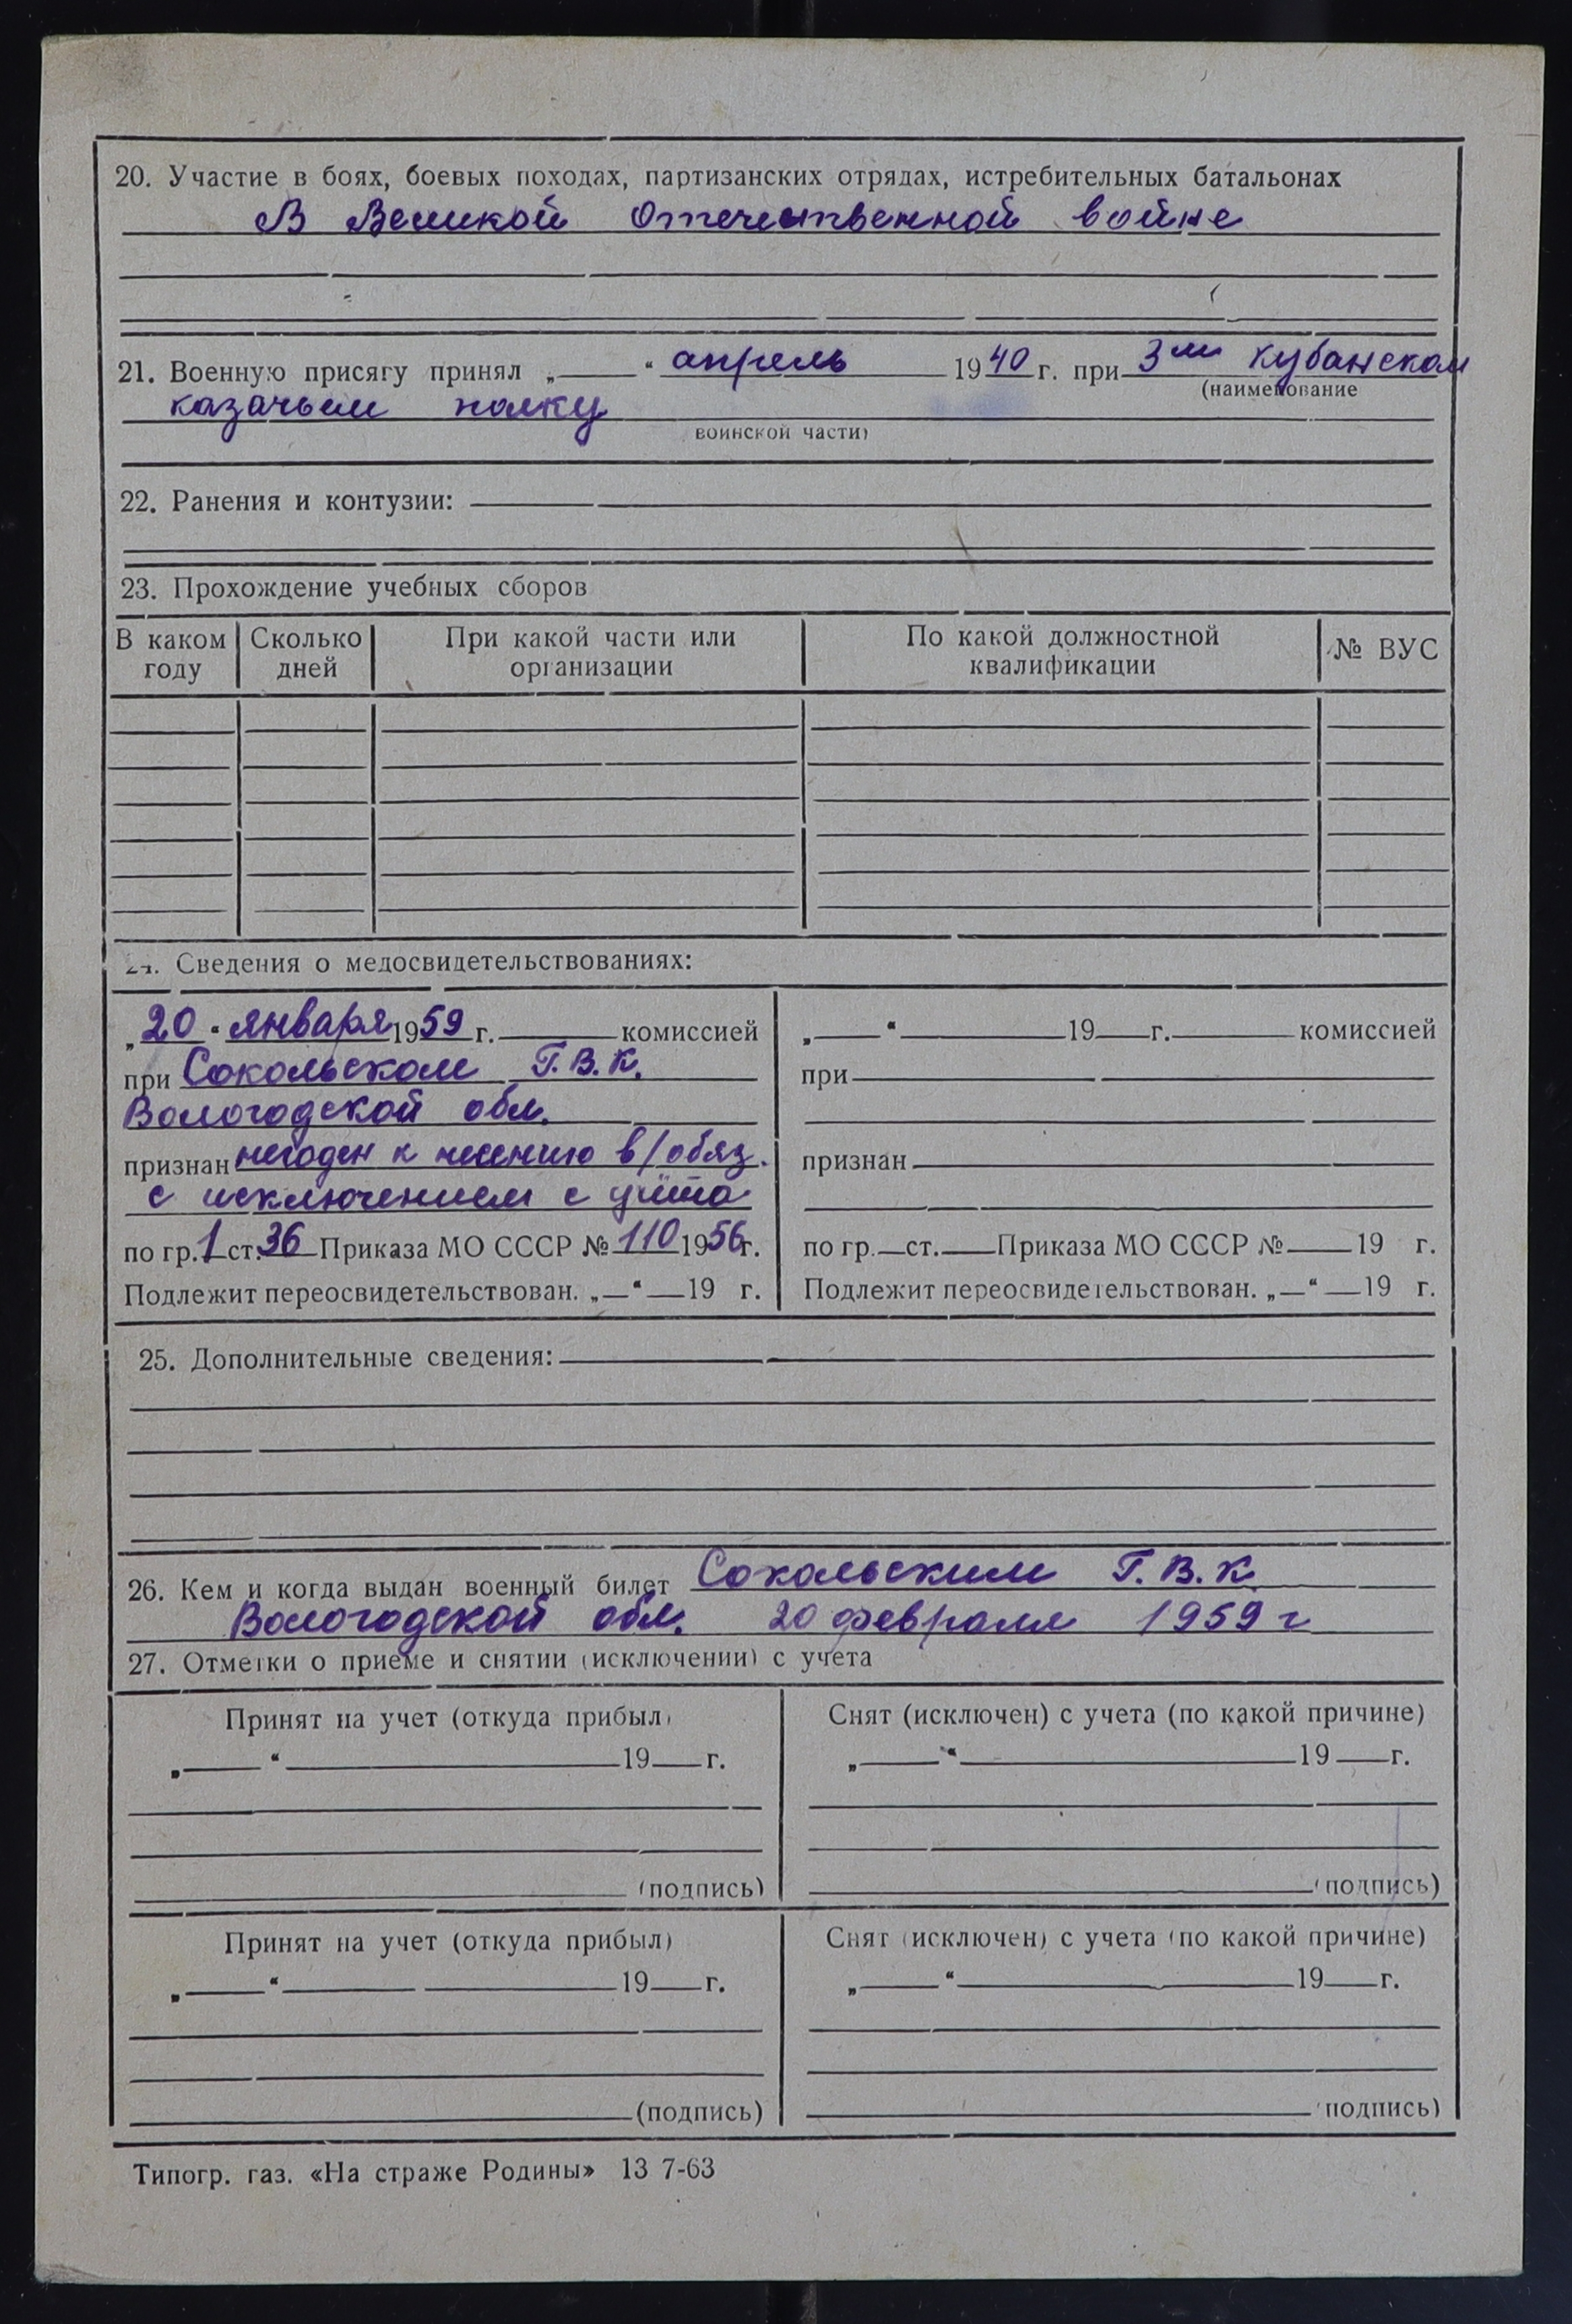 20. Участие в боях, боевых походах, партизанских отрядах, истребительных батальонах
В Великой Отечественной войне
21. Военную присягу принял „ “ апрель 1940 г. при 3ем Кубанском
(наименование
казачьем полку
воинской части)
22. Ранения и контузии:
23. Прохождение учебных сборов
В каком году
Сколько дней
При какой части или организации
По какой должностной квалификации
№ ВУС
24. Сведения о медосвидетельствованиях:
„20“ января 1959 г. комиссией
при Сокольском Г.В.К.
Вологодской обл.
признан негоден к несению в/обяз.
с исключением с учёта
по гр. 1 ст. 36 Приказа МО СССР № 110 1956 г.
Подлежит переосвидетельствован. „ “ 19 г.
„ “ 19 г. комиссией
при
признан
по гр. ст. Приказа МО СССР № 19 г.
Подлежит переосвидетельствован. „ “ 19 г.
25. Дополнительные сведения:
26. Кем и когда выдан военный билет Сокольским Г.В.К.
Вологодской обл. 20 февраля 1959 г
27. Отметки о приеме и снятии (исключении) с учета
Принят на учет (откуда прибыл)
„ “ 19 г.
(подпись)
Снят (исключен) с учета (по какой причине)
„ “ 19 г.
(подпись)
Принят на учет (откуда прибыл)
„ “ 19 г.
(подпись)
Снят (исключен) с учета (по какой причине)
„ “ 19 г.
(подпись)
Типогр. газ. «На страже Родины» 13 7-63